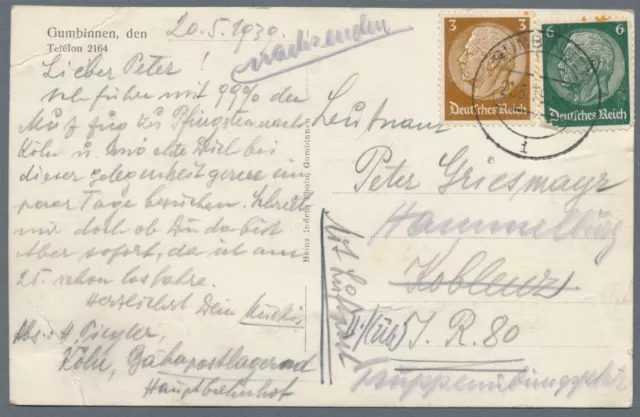 Gumbinnen, den 20.5.1939
Telefon 2164
nachsenden
Lieber Peter!
Ich fahre mit 99% den
zu Pfingsten nach
Köln u. möchte Dich bei
dieser Gelegenheit gerne ein
paar Tage besuchen. Schreib
mir doch ob Du da bist
Aber sofort, da ich am
25. schon losfahre.
Herzlichst Dein
Abs: H. Ziegler,
Köln, Bahnpostlagernd
Hauptbahnhof
Heinz Gumbinnen
3
Deutsches Reich
6
Deutsches Reich
1
Leutnant
Peter Griesmayr
Hammelburg
Koblenz
I.R. 80
Truppenübungsplatz